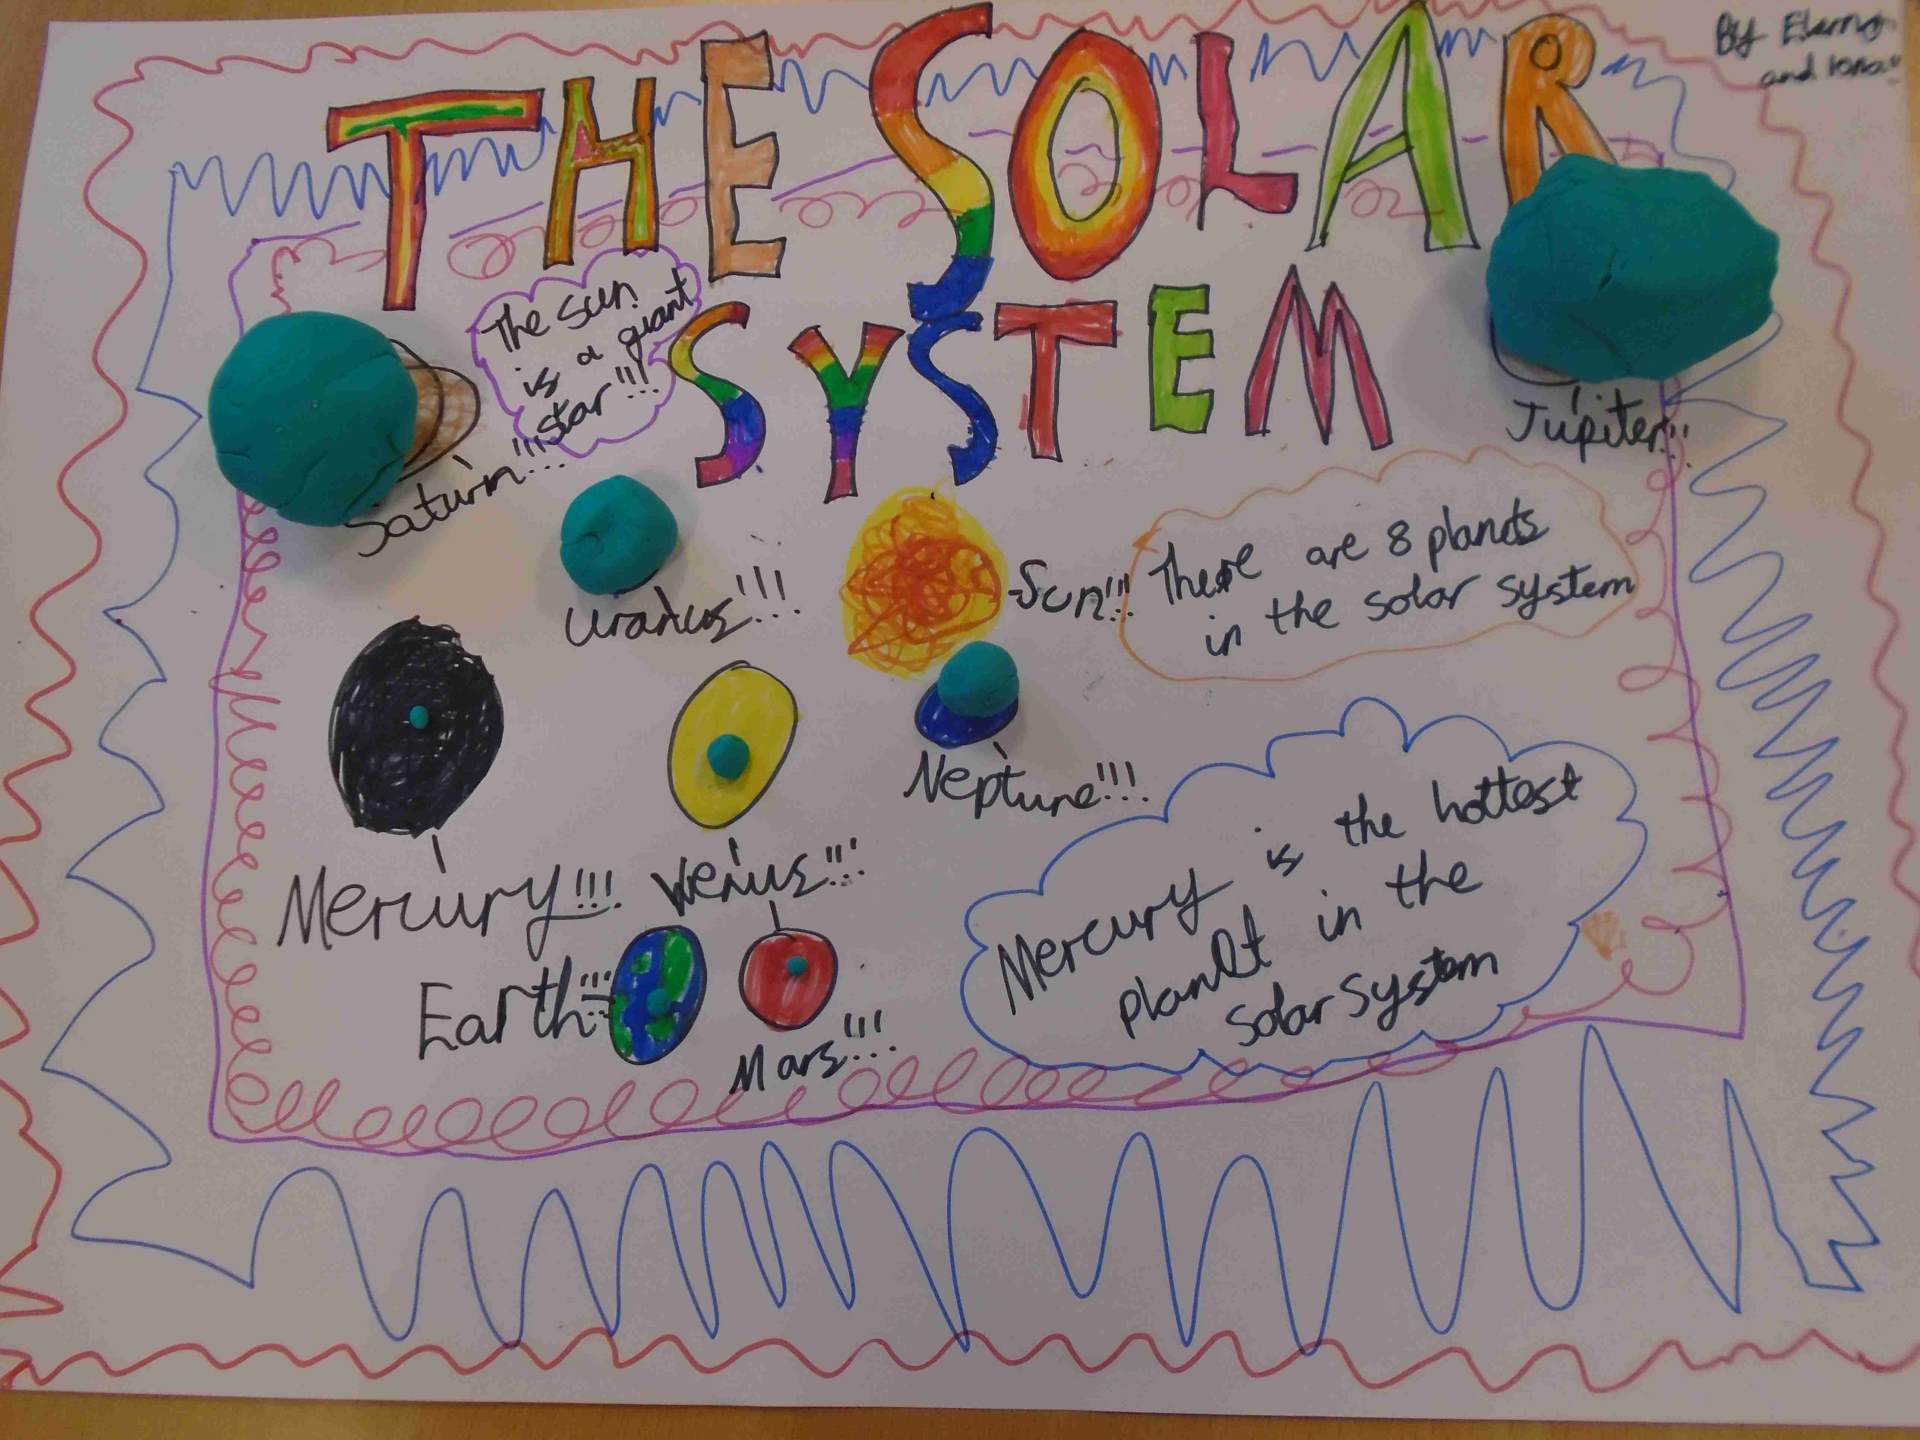 By
and Iona!!
THE SOLAR
SYSTEM
The sun
is a giant
star!!!
Saturn!!!
Jupiter!!
Uranus!!!
Sun!!!
There are 8 planets
in the solar system
Neptune!!!
Mercury!!!
Venus!!!
Earth!!!
Mars!!!
Mercury is the hottest
planet in the
Solar System